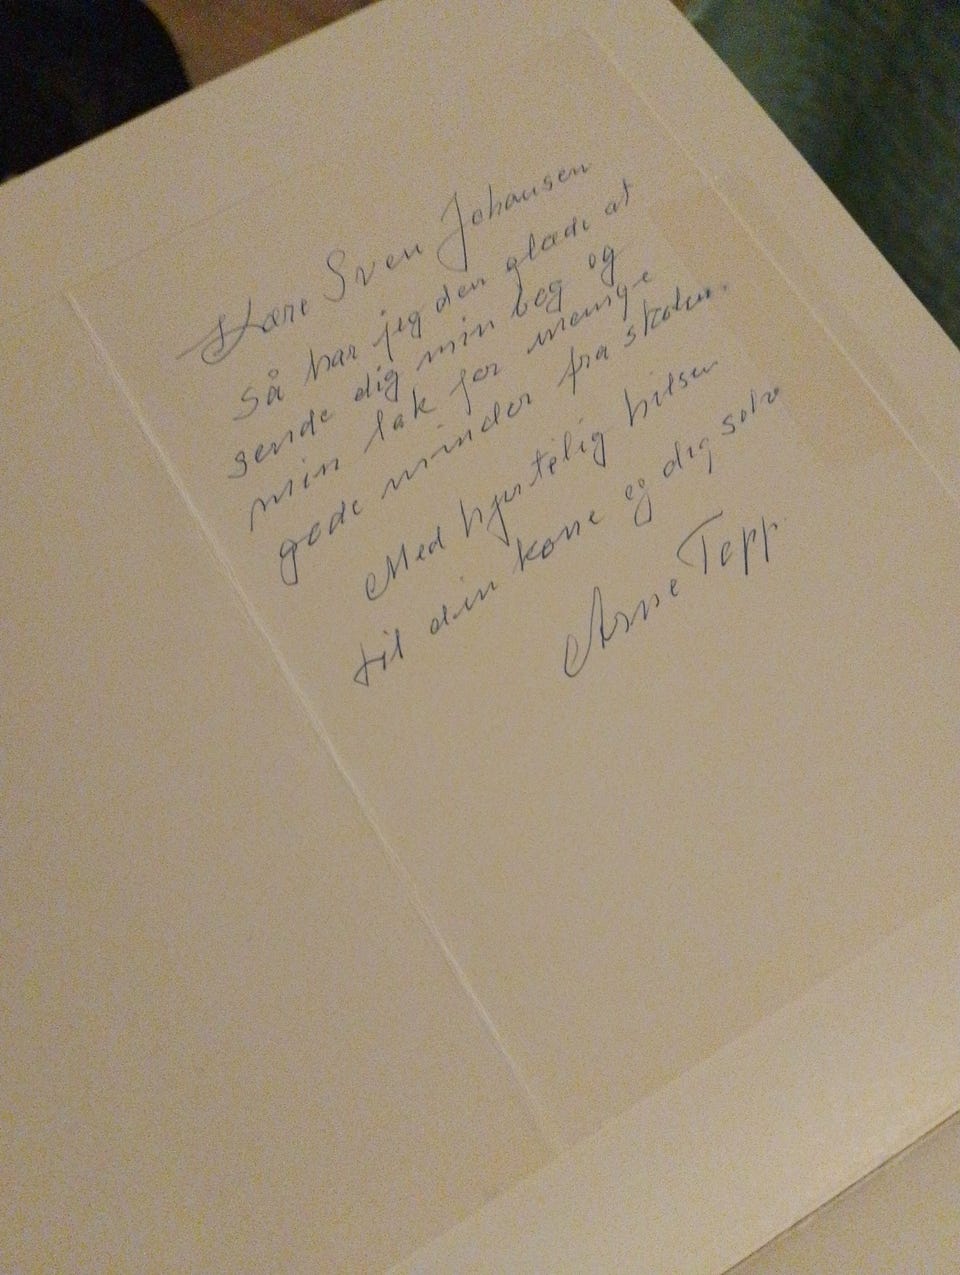 Kære Sven Johansen
Så har jeg den glæde at
sende dig min bog og
min tak for mange
gode minder fra skolen.
Med hjertelig hilsen
til din kone og dig selv
Arne Topp